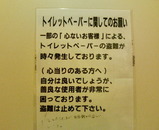 トイレットペーパーに関してのお願い
一部の「心ないお客様」による、
トイレットペーパーの盗難が
時々発生しております。
(心当りのある方へ)
自分は良いでしょうが、
善良な使用者が非常に
困っております。
盗難は止めて下さい。